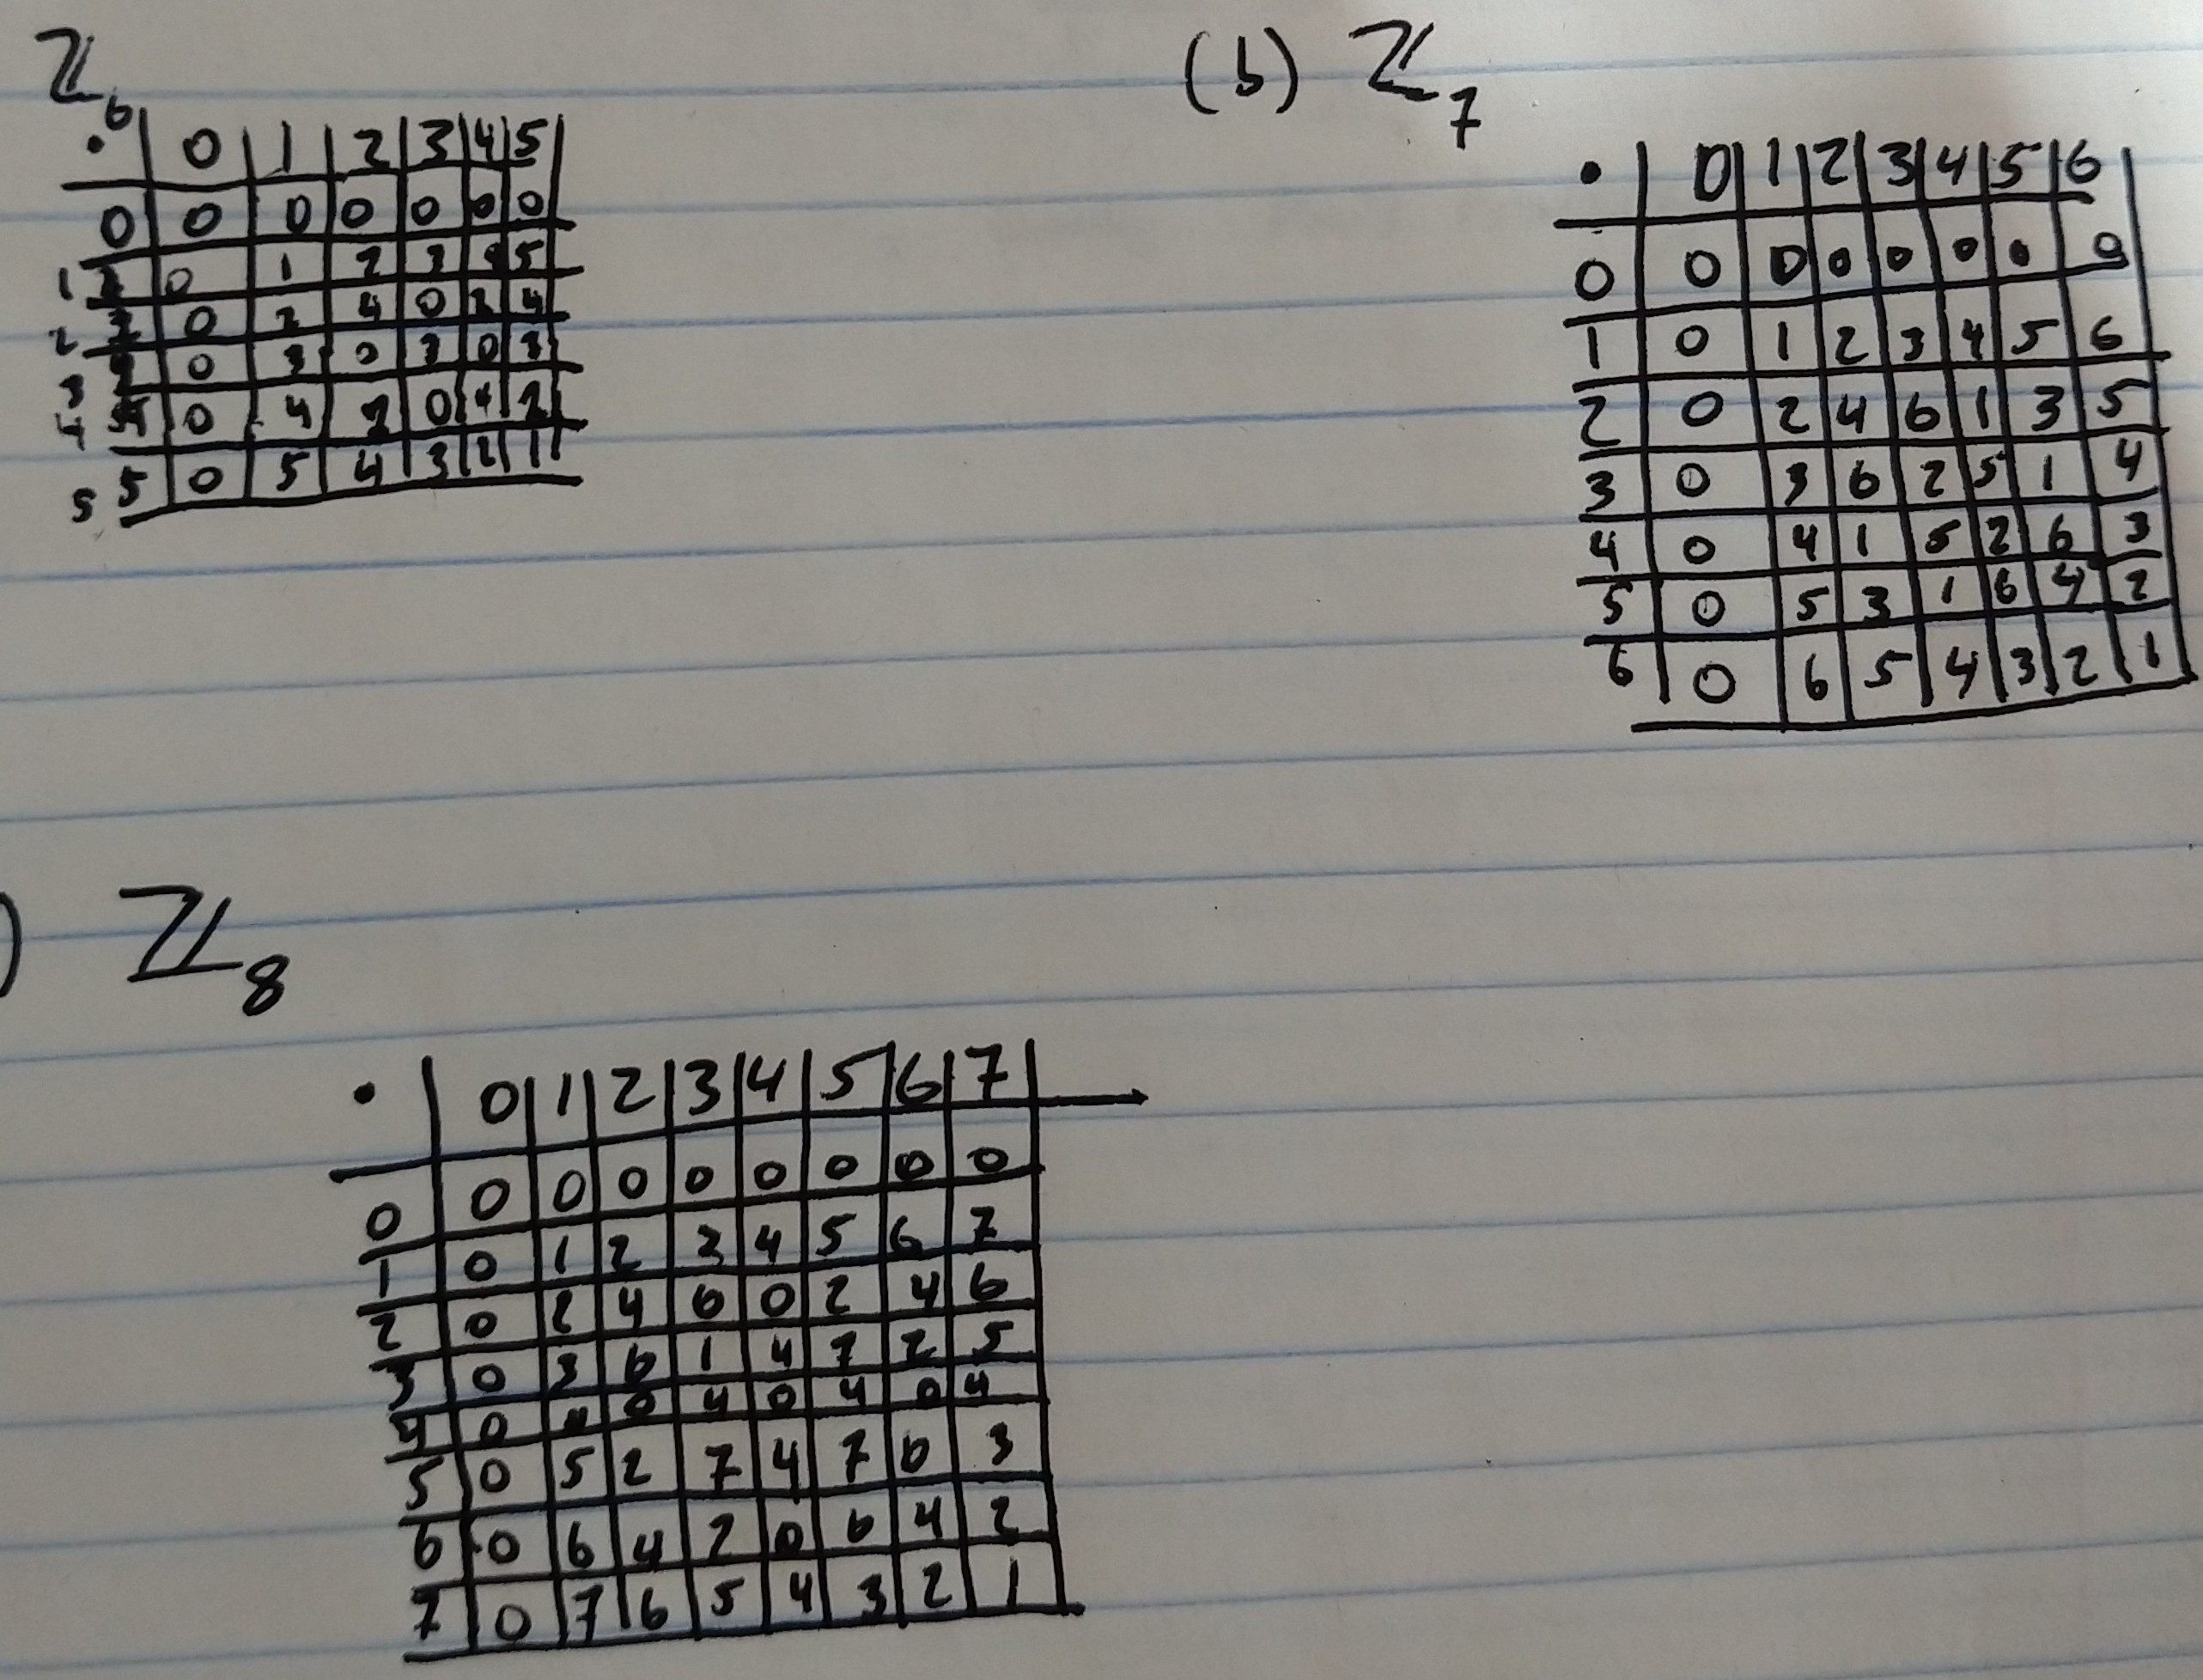 ℤ₆
· 0 1 2 3 4 5
0 0 0 0 0 0 0
1 0 1 2 3 4 5
2 0 2 4 0 2 4
3 0 3 0 3 0 3
4 0 4 2 0 4 2
5 5 0 5 4 3 2 1
(b) ℤ₇
· 0 1 2 3 4 5 6
0 0 0 0 0 0 0 0
1 0 1 2 3 4 5 6
2 0 2 4 6 1 3 5
3 0 3 6 2 5 1 4
4 0 4 1 5 2 6 3
5 0 5 3 1 6 4 2
6 0 6 5 4 3 2 1
) ℤ₈
· 0 1 2 3 4 5 6 7
0 0 0 0 0 0 0 0 0
1 0 1 2 3 4 5 6 7
2 0 2 4 6 0 2 4 6
3 0 3 6 1 4 7 2 5
4 0 4 0 4 0 4 0 4
5 0 5 2 7 4 7 6 3
6 0 6 4 2 0 6 4 2
7 0 7 6 5 4 3 2 1